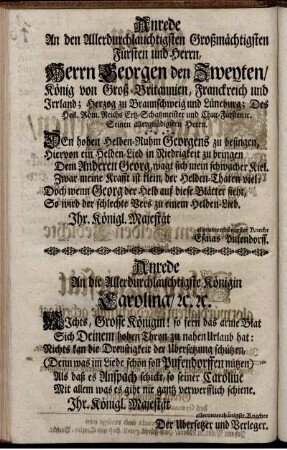 Anrede
An den Allerdurchlauchtigsten Großmächtigsten
Fürsten und Herrn,
Herrn Georgen den Zweyten/
König von Groß-Britannien, Franckreich und
Irrland; Hertzog zu Braunschweig und Lüneburg; Des
Heil. Röm. Reichs Ertz-Schatzmeister und Chur-Fürsten ꝛc.
Seinen allergnädigsten Herrn.
DEn hohen Helden-Ruhm Georgens zu besingen,
Hiervon ein Helden-Lied in Niedrigkeit zu bringen
Dem Anderen Georg, wagt sich mein schwacher Kiel.
Zwar meine Krafft ist klein, der Helden-Thaten viel:
Doch wenn Georg der Held auf diese Blätter siehet,
So wird der schlechte Vers zu einem Helden-Lied.
Ihr. Königl. Majestät
Knecht
Esaias Pufendorff.
Anrede
An die Allerdurchlauchtigste Königin
Carolina/ ꝛc. ꝛc.
NIchts, Grosse Königin! so fern das arme Blat
Sich Deinem hohen Thron zu nahen Urlaub hat:
Nichts kan die Dreustigkeit der Ubersetzung schützen,
(Denn was im Liede schön soll Pufendorffen nützen)
Als daß es Anspach schickt, so seiner Caroline
Mit allem was es gibt nie gantz verwerfflich schiene.
Ihr. Königl. Majestät
Der Ubersetzer und Verleger.